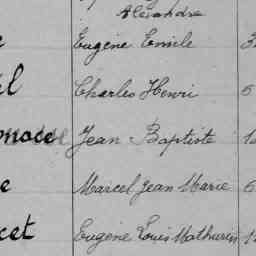 Alexandre
e Eugène Emile 3
el Charles Henri 5
onace Jean Baptiste 1
e Marcel Jean Marie 6
cet Eugène Louis Mathurin 1